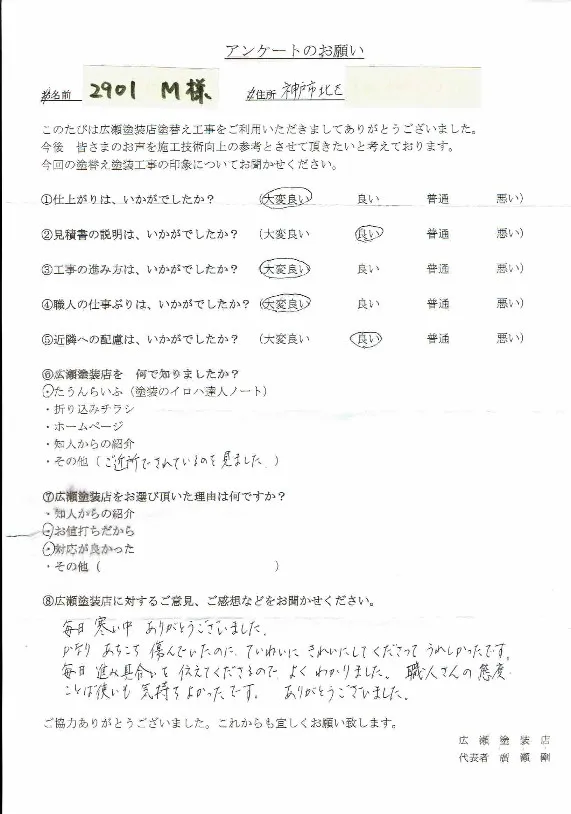 アンケートのお願い
お名前 2901 M様 ご住所 神戸市北区
このたびは広瀬塗装店塗替え工事をご利用いただきましてありがとうございました。
今後 皆さまのお声を施工技術向上の参考とさせて頂きたいと考えております。
今回の塗替え塗装工事の印象についてお聞かせください。
①仕上がりは、いかがでしたか？ （大変良い 良い 普通 悪い）
②見積書の説明は、いかがでしたか？ （大変良い 良い 普通 悪い）
③工事の進み方は、いかがでしたか？ （大変良い 良い 普通 悪い）
④職人の仕事ぶりは、いかがでしたか？ （大変良い 良い 普通 悪い）
⑤近隣への配慮は、いかがでしたか？ （大変良い 良い 普通 悪い）
⑥広瀬塗装店を 何で知りましたか？
・たうんらいふ（塗装のイロハ達人ノート）
・折り込みチラシ
・ホームページ
・知人からの紹介
・その他（ご近所でされているのを見ました。）
⑦広瀬塗装店をお選び頂いた理由は何ですか？
・知人からの紹介
・お値打ちだから
・対応が良かった
・その他（ ）
⑧広瀬塗装店に対するご意見、ご感想などをお聞かせください。
毎日 寒い中 ありがとうございました。
かなり あちこち 傷んでいたのに、ていねいに きれいにしてくださって うれしかったです。
毎日 進み具合いを 伝えてくださるので よく わかりました。 職人さんの 態度・
ことば使いも 気持ちよかったです。 ありがとうございました。
ご協力ありがとうございました。これからも宜しくお願い致します。
広 瀬 塗 装 店
代表者 廣 瀬 剛